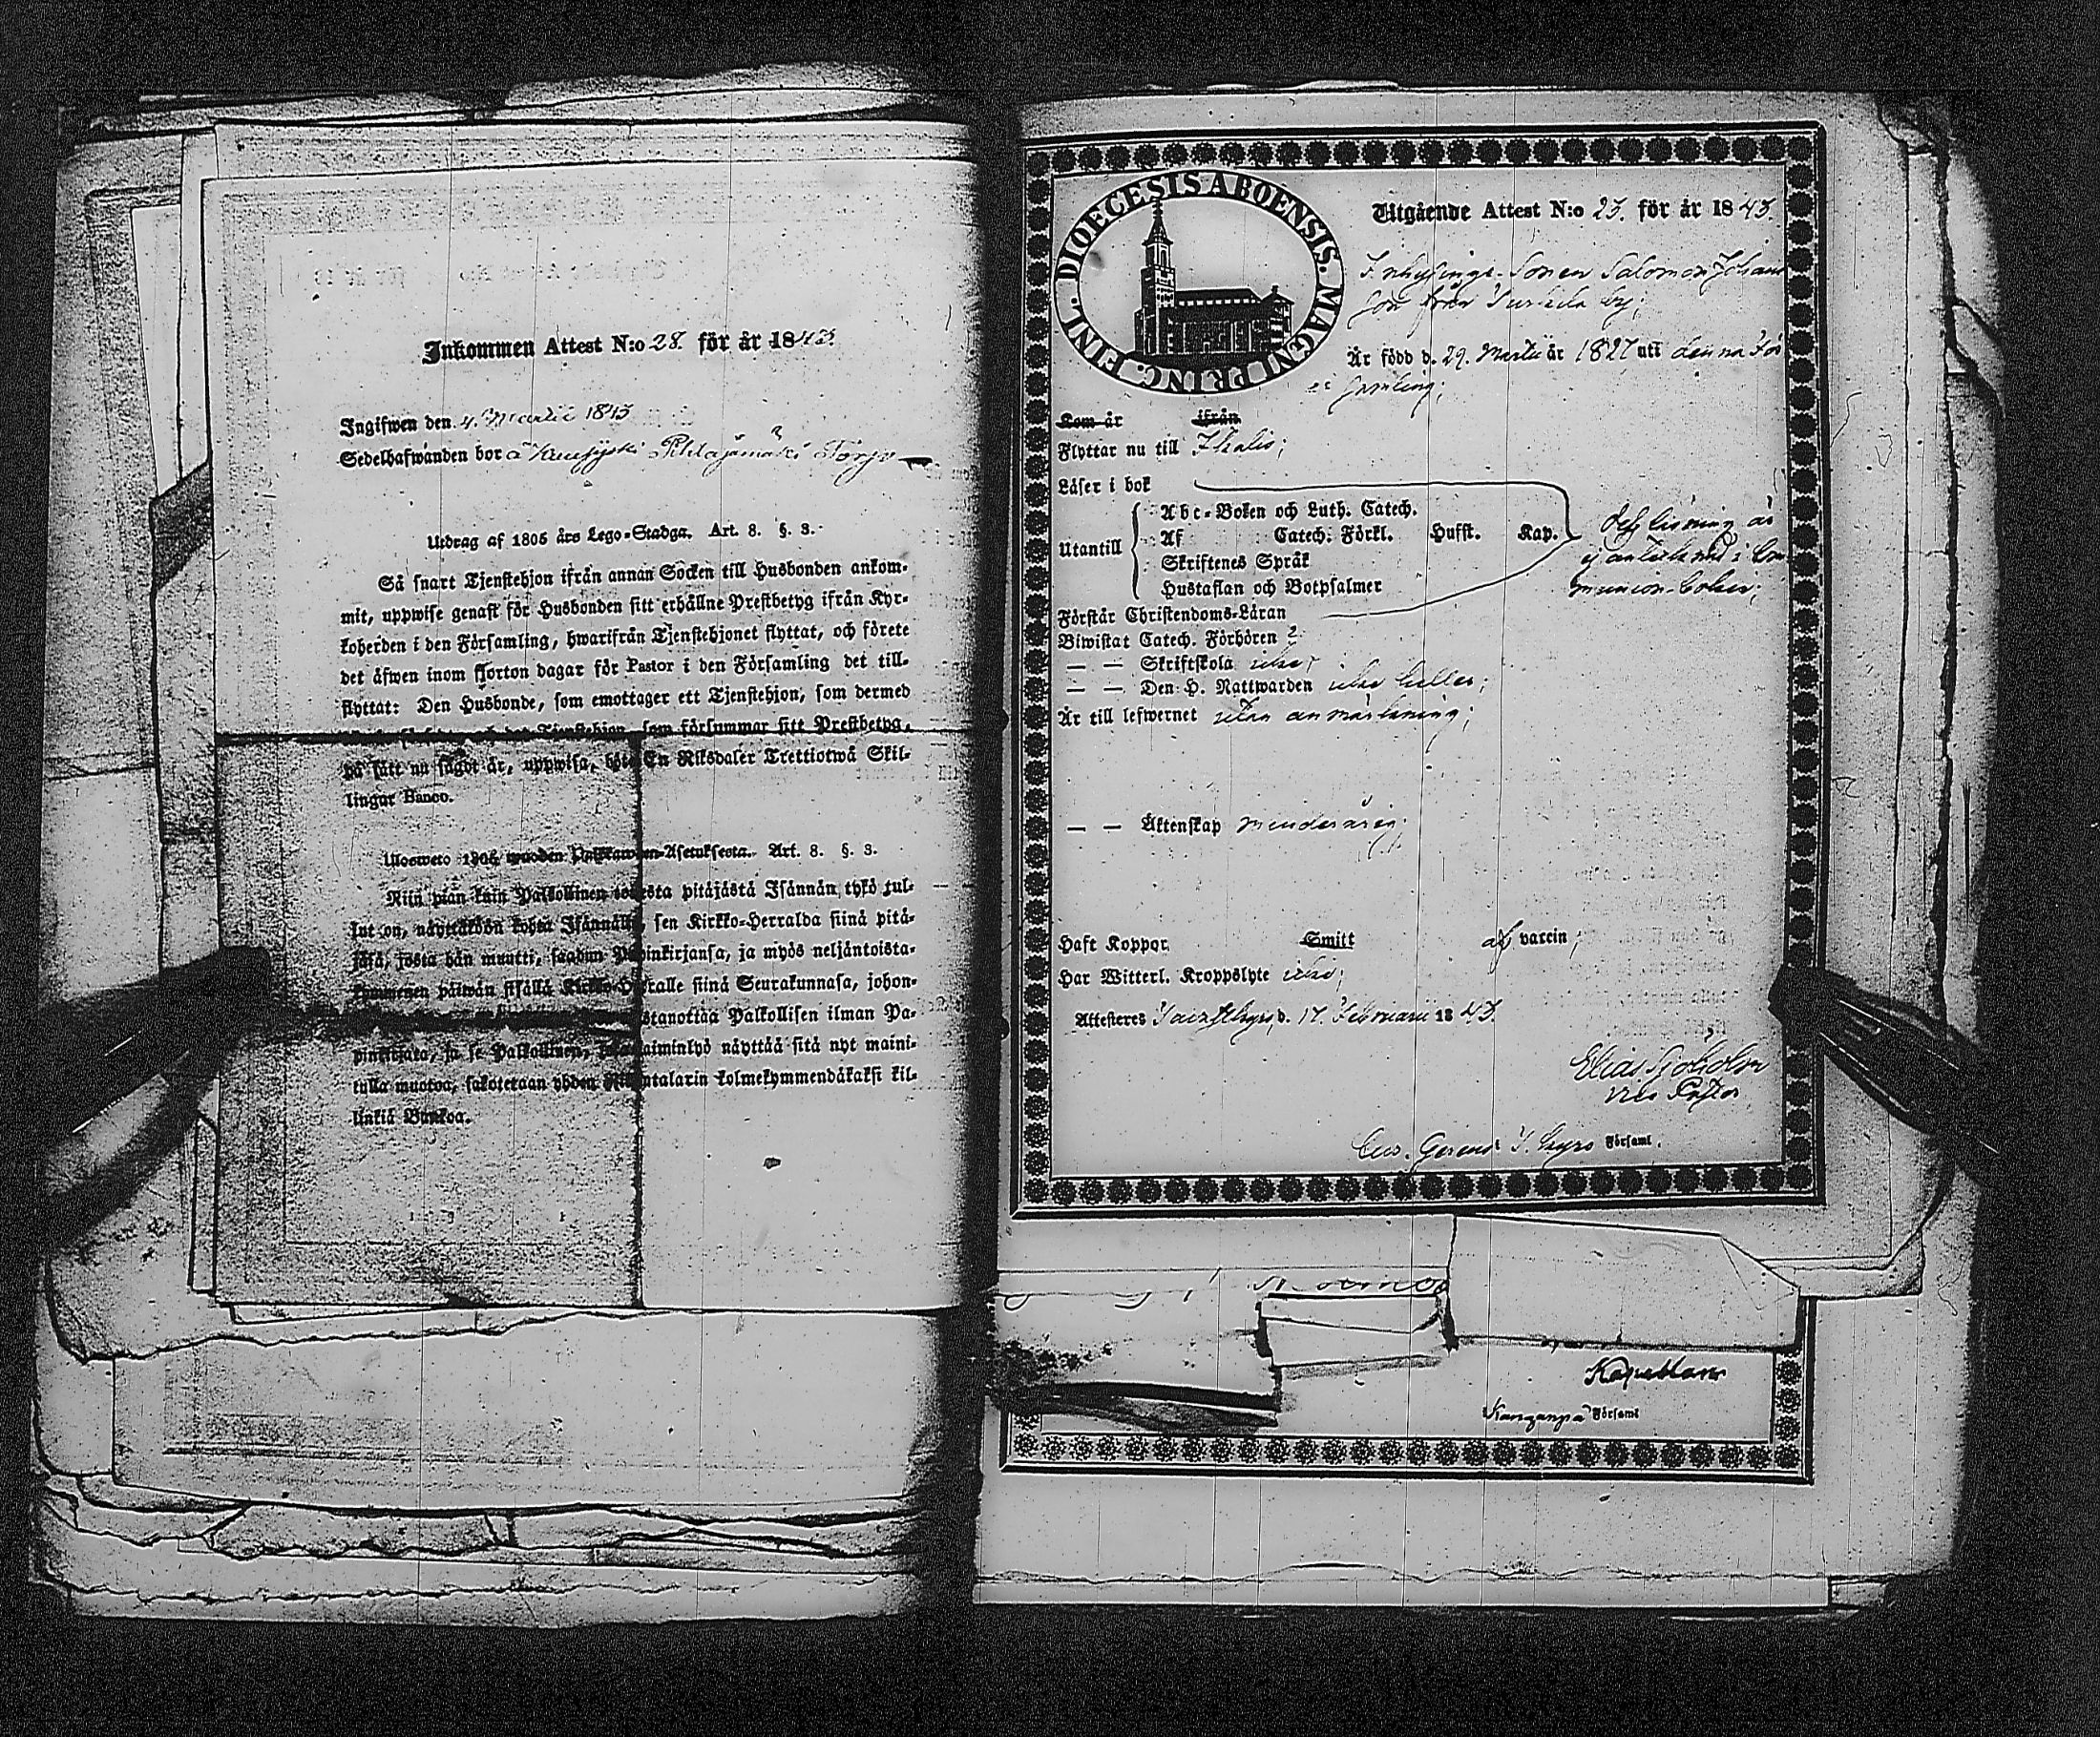 Inkommen Attest N:o 28. för år 1843.
Ingifwen den 4. Martii 1843
Sedelhafwanden bor å Pihlajamäki Torp
Utdrag af 1805 års Lego-Stadga. Art. 8. §. 3.
Så snart Tjenstehjon ifrån annan Socken till Husbonden ankom-
mit, uppwise genast för Husbonden sitt erhållne Prestbetyg ifrån Kyr-
koherden i den Församling, hwarifrån Tjenstehjonet flyttat, och förete
det äfwen inom fjorton dagar för Pastor i den Församling det till-
flyttat: Den Husbonde, som emottager ett Tjenstehjon, som dermed
Tjenstehjon, som försummar sitt Prestbetyg,
på sätt nu sagdt är, uppwisa, böte En Riksdaler Trettiotwå Skil-
lingar Banco.
Uloswето 1805 wuoden Palkkawäen-Asetuksesta. Art. 8. §. 3.
Niin pian kuin Palkollinen toisesta pitäjästä Isännän tykö tul-
lut on, näyttäköön kohta Isännälle, sen Kirkko-Herralda siinä pitä-
jäsä, josta hän muutti, saadun Papinkirjansa, ja myös neljäntoista-
kymmenen päiwän sisällä Kirkko-Herralle siinä Seurakunnasa, johon-
stanottaa Palkollisen ilman Pa-
pinkirjata, ja se Palkollinen, joka laiminlyö näyttää sitä nyt maini-
tulla muotoa, sakotetaan yhden Riksintalarin kolmekymmendäkaksi kil-
linkiä Bankoa.
FINL. DIOECESIS ABOENSIS. MAGNI PRINC.
Utgående Attest N:o 23. för år 1843.
Inhysings-Sonen Salomon Johans
Son från by;
År född d. 29. Martii år 1827 uti denna För
samling;
Kom år ifrån
Flyttar nu till Ikalis;
Läser i bok
Abc-Boken och Luth. Catech.
Utantill Af Catech. Förkl. Hufst. Kap.
Skriftenes Språk
Hustaflan och Botpsalmer
dess läsning är
ej antecknad i Com
munion-boken;
Förstår Christendoms-Läran
Biwistat Catech. Förhören ?
— — Skriftskola icke;
— — Den H. Nattwarden icke heller;
Är till lefwernet utan anmärkning;
— — Äktenskap minderårig;
Haft Koppor Smitt af vaccin;
Har Witterl. Kroppslyte icke;
Attesteres Tawastkyro, d. 17. Februarii 1843.
Elias Sjöholm
Vice Pastor
T. Kyro Församl.
Kapellan
Kangaspä Församl